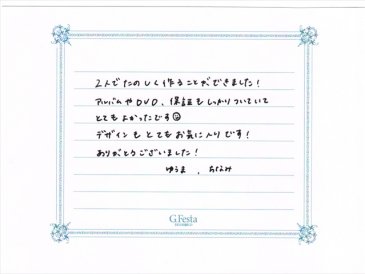 2人でたのしく作ることができました!
アルバムやDVD、保証もしっかりついていて
とてもよかったです☺
デザインもとてもお気に入りです!
ありがとうございました!
ゆうま、ちなみ
G.Festa